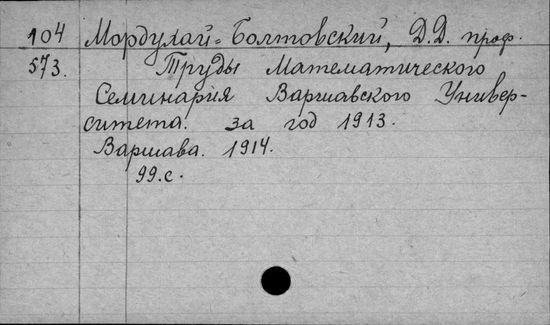 104 Мордухай-Болтовский, Д.Д. проф.
573. Труды Математического
Семинария Варшавского Универ-
ситета. за год 1913.
Варшава. 1914.
99.с.